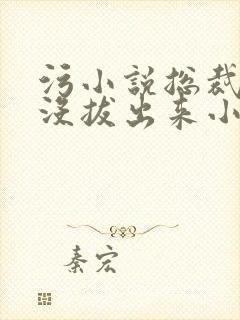 污小说总裁
没拔出来小
秦宏